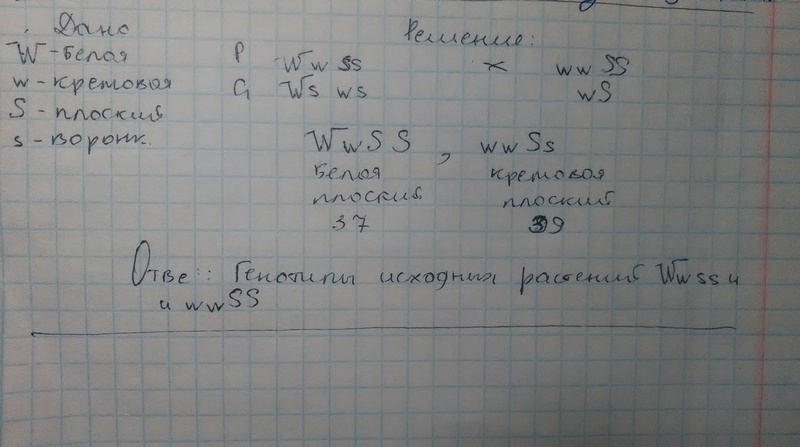 Дано
Решение:
W - Белая
w - кремовая
S - плоский
s - воронк.
P Ww ss × ww SS
G Ws ws wS
WwSS, wwSs
Белая кремовая
плоский плоский
37 39
Ответ: Генотипы исходных растений Wwss и
и wwSS